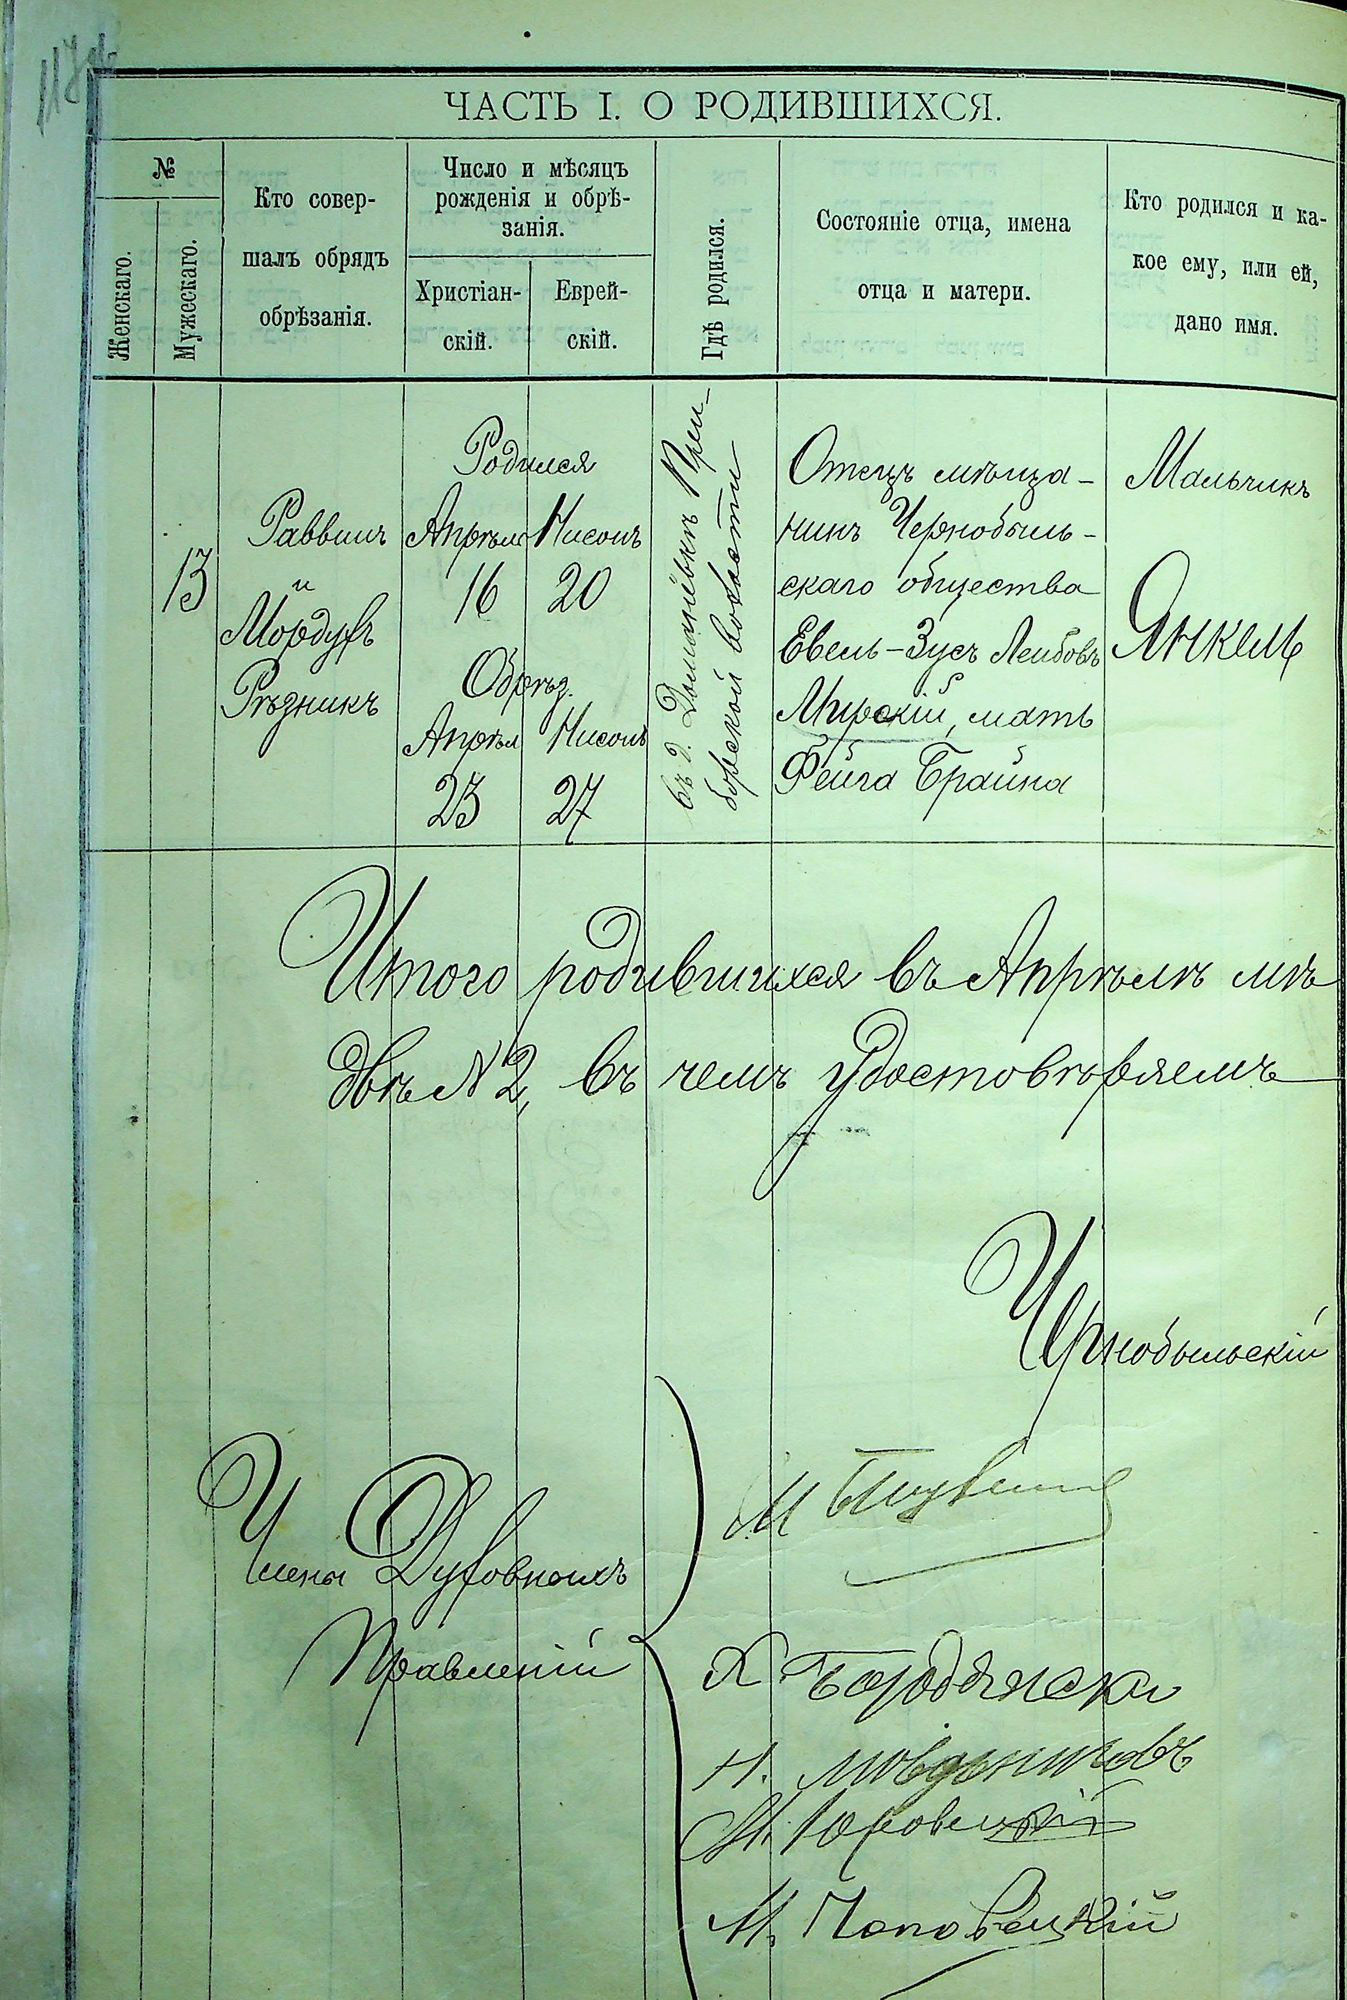 ЧАСТЬ I. О РОДИВШИХСЯ.
№
Женскаго.
Мужескаго.
Кто совер-
шалъ обрядъ
обрѣзанія.
Число и мѣсяцъ
рожденія и обрѣ-
занія.
Христіан-
скій.
Еврей-
скій.
Гдѣ родился.
Состояніе отца, имена
отца и матери.
Кто родился и ка-
кое ему, или ей,
дано имя.
13
Раввинъ
и
Мордухъ
Рѣзникъ
Родился
Апрѣль Нисонъ
16 20
Обрѣз.
Апрѣл Нисонъ
23 27
въ д. При-
борской волости
Отецъ мѣща-
нинъ Чернобыль-
скаго общества
Евель-Зусъ Лейбовъ
Мирскій, мать
Фейга Брайна
Мальчикъ
Янкель
Итого родившихся въ Апрѣлѣ мѣ
двѣ №2, въ чемъ удостовѣряемъ
Чернобыльскій
Члены Духовныхъ
Правленій
М
Х Бородянски
Н.
М. Юровицкій
М. Чаповецкій